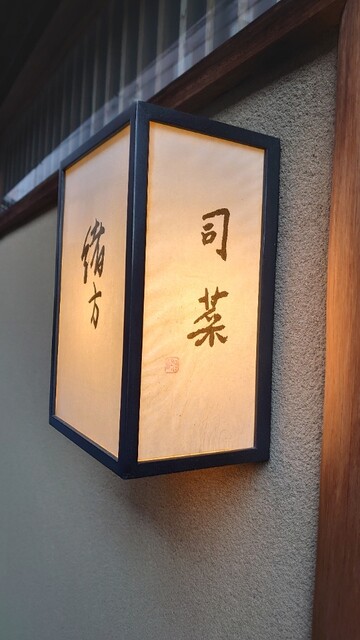 司菜
緒方